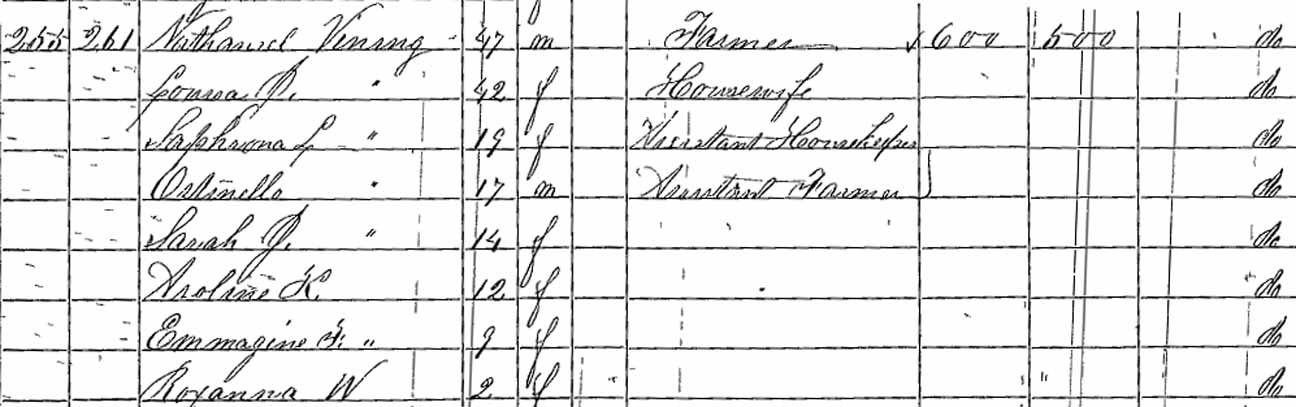 255 261 Nathaniel Vining 47 m Farmer 600 500 do
Louisa P. " 42 f Housewife do
Saphrona L " 19 f Assistant Housekeeper do
Ostinello " 17 m Assistant Farmer do
Sarah P. " 14 f do
Aroline K. 12 f do
Emmagine F. " 9 f do
Roxanna W 2 f " do